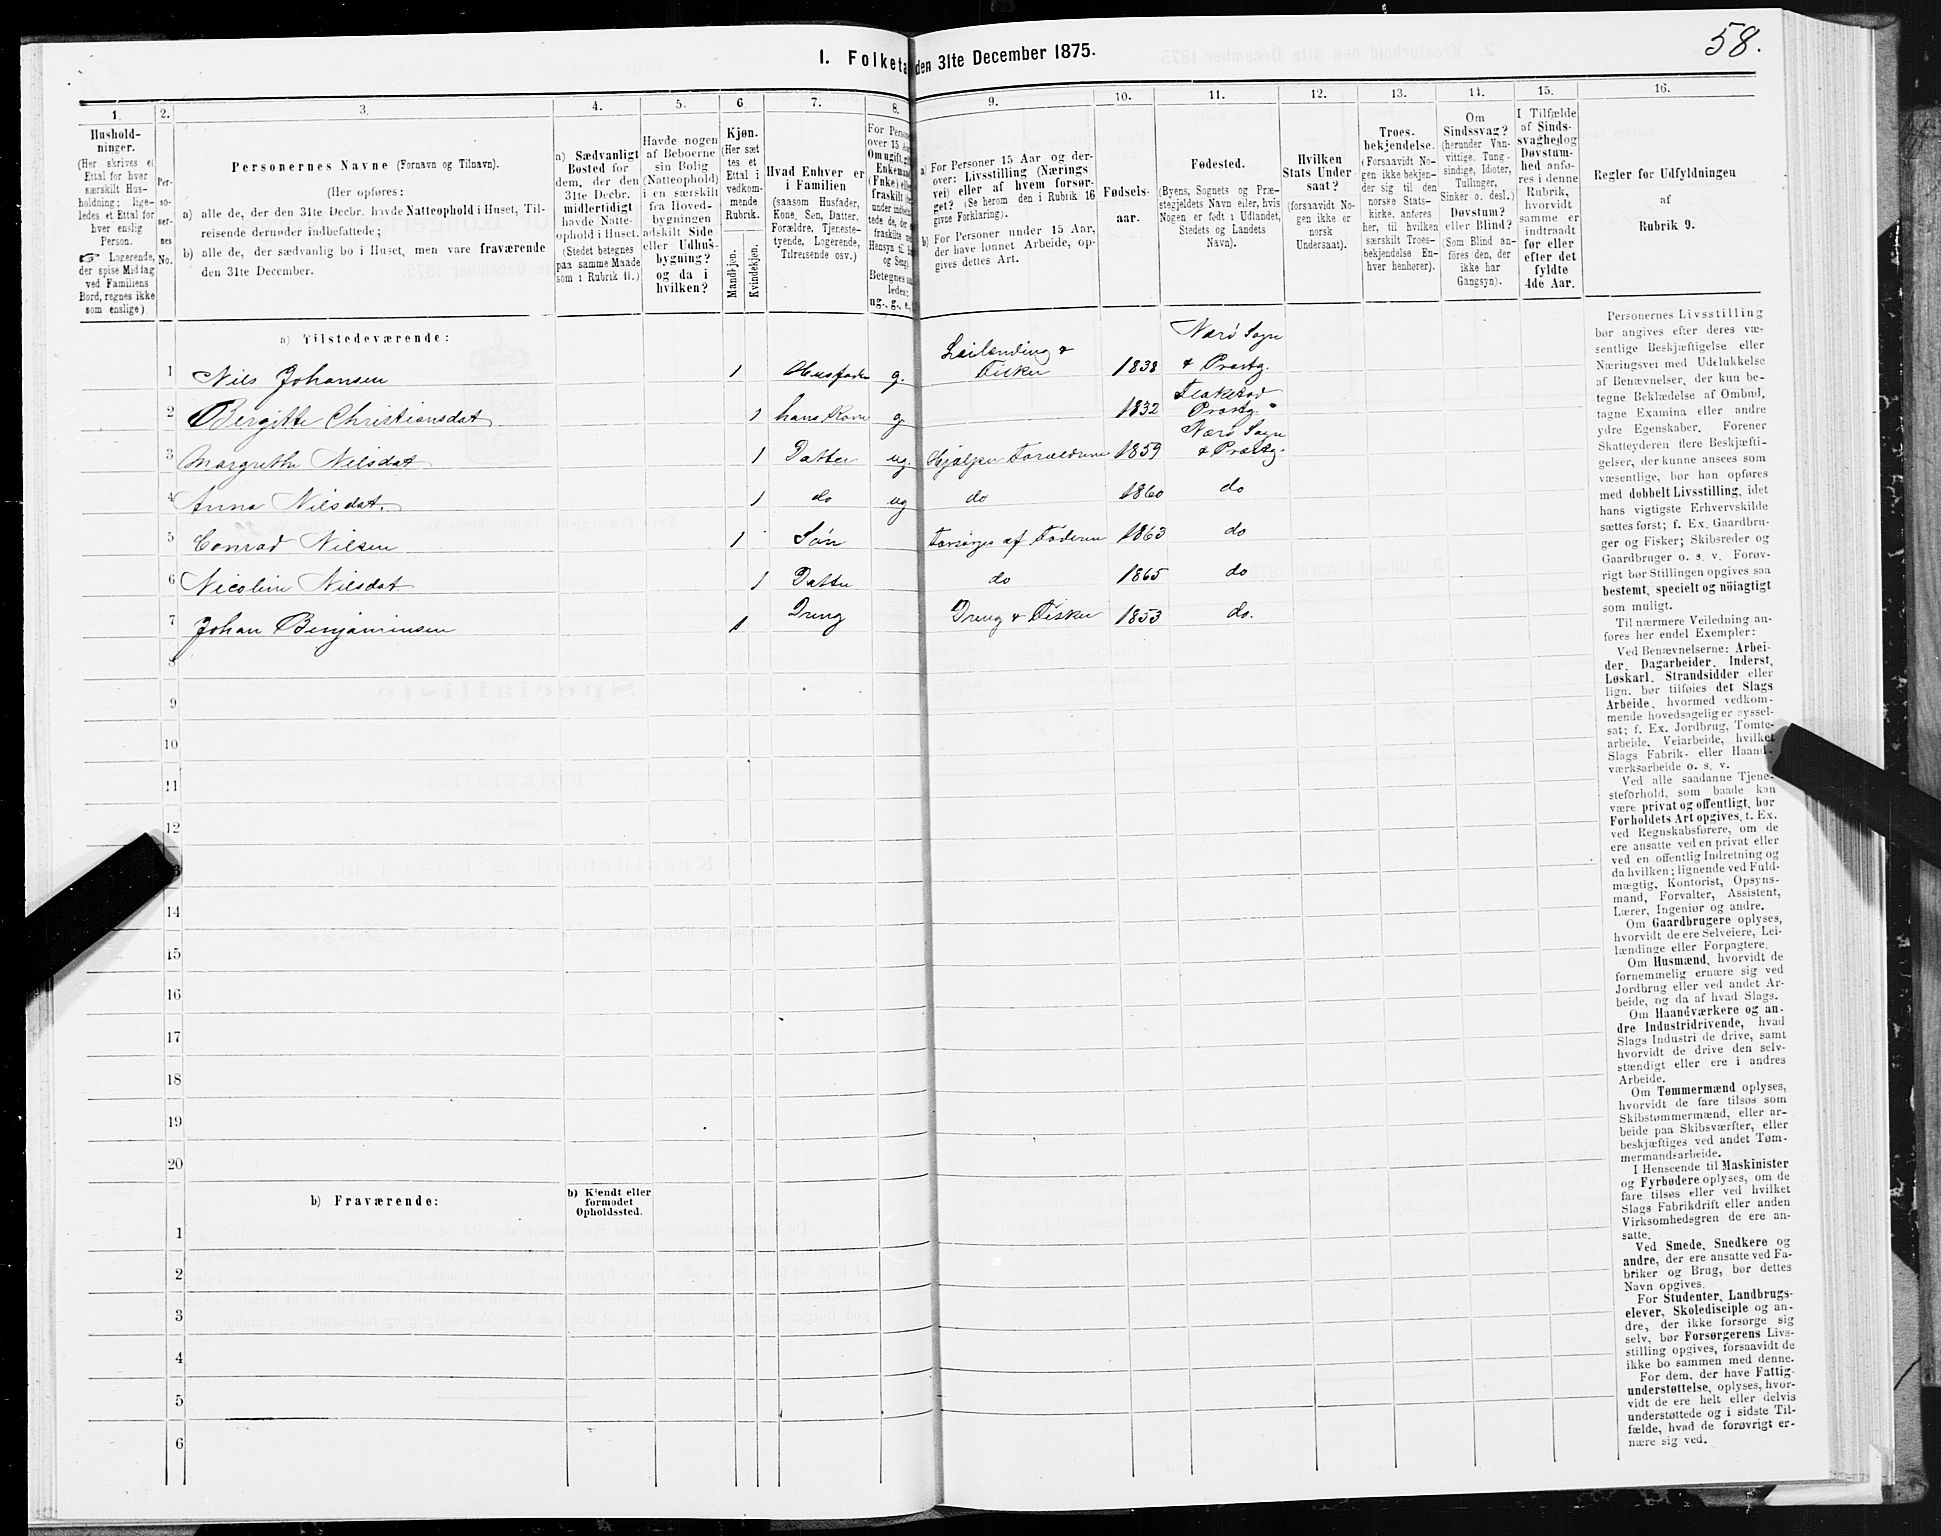 58.
1. Folketa den 31te December 1875.
1. 2. 3. 4. 5. 6. 7. 8. 9. 10. 11. 12. 13. 14. 15. 16.
Hushold-
ninger.
(Her skrives et
Ettal for hver
særskilt Hus-
holdning; lige-
ledes et Ettal for
hver enslig
Person.
☞ Logerende,
der spise Middag
ved Familiens
Bord, regnes ikke
som enslige)
Per-
so-
ner-
nes
No.
Personernes Navne (Fornavn og Tilnavn).
(Her opføres:
a) alle de, der den 31te Decbr. havde Natteophold i Huset, Til-
reisende derunder indbefattede;
b) alle de, der sædvanlig bo i Huset, men vare fraværende
den 31te December.
a) Sædvanligt
Bosted for
dem, der den
31te Decbr.
midlertidigt
havde Natte-
ophold i Huset.
(Stedet betegnes
paa samme Maade
som i Rubrik 11.)
Havde nogen
af Beboerne
sin Bolig
(Natteophold)
i en særskilt
fra Hoved-
bygningen
adskilt Side
eller Udhus-
bygning?
og da i
hvilken?
Kjøn.
(Her sæt
tes et
Ettal i
vedkom-
mende
Rubrik.
Mandkjøn.
Kvindekjøn.
Hvad Enhver er
i Familien
(saasom Husfader,
Kone, Søn, Datter,
Forældre, Tjeneste-
tyende, Logerende,
Tilreisende osv.)
For Perso
over 15 Aa
Om ugift, gif
Enkemand
(Enke) elle
fraskilt
Betegnes s
ledes:
ug., g., e.
a) For Personer 15 Aar og der-
over: Livsstilling (Nærings
vei) eller af hvem forsør-
get? (Se herom den i Rubrik 16
givne Forklaring).
b) For Personer under 15 Aar,
der have lønnet Arbeide, op-
gives dettes Art.
Fødsels-
aar.
Fødested.
(Byens, Sognets og Præ-
stegjeldets Navn eller, hvis
Nogen er født i Udlandet,
Stedets og Landets
Navn).
Hvilken
Stats Under
saat?
(forsaavidt No-
gen ikke er
norsk
Undersaat).
Troes-
bekjendelse.
(Forsaavidt No-
gen ikke bekjen-
der sig til den
norske Stats-
kirke, anføres
her, til hvilken
særskilt Troes-
bekjendelse En-
hver henhører).
Om
Sindssvag?
(herunder Van-
vittige, Tung-
sindige, Idioter,
Tullinger,
Sinker o. desl.)
Døvstum?
eller Blind?
(Som Blind an-
føres den, der
ikke har
Gangsyn).
I Tilfælde
af Sinds-
svaghed og
Døvstum-
hed anfø-
res i denne
Rubrik,
hvorvidt
samme er
indtraadt
før eller
efter det
fyldte
4de Aar.
Regler for Udfyldningen
af
Rubrik 9.
a) Tilstedeværende:
1 Nils Johansen 1 Husfader g. Leilending & Fisker 1838 Nærö Sogn & Prestg.
2 Bergitte Christiansdat 1 hans Kone g 1832 Prestg.
3 Margrethe Nilsdat 1 Datter ug. Hjelper Forældrene 1859 Nærö Sogn & Prestg.
4 Anna Nilsdat. 1 do ug do 1860 do
5 Conrad Nilsen 1 Sön Forsörges af Faderen 1863 do
6 Nicoline Nilsdat 1 Datter do 1865 do
7 Johan Benjaminsen 1 Dreng Dreng & Fisker 1853 do.
8
9
10
11
12
14
15
16
17
18
19
20
b) Fraværende:
b) Kjendt eller
formodet
Opholdssted.
1
2
3
4
5
6
Personernes Livsstilling
bør angives efter deres væ-
sentlige Beskjæftigelse eller
Næringsvei med Udelukkelse
af Benævnelser, der kun be-
tegne Beklædelse af Ombud,
tagne Examina eller andre
ydre Egenskaber. Forener
Skatteyderen flere Beskjæfti-
gelser, der kunne ansees som
væsentlige, bør han opføres
med dobbelt Livsstilling, idet
hans vigtigste Erhvervskilde
sættes først; f. Ex. Gaardbru-
ger og Fisker; Skibsreder og
Gaardbruger o. s. v. Forøv-
rigt bør Stillingen opgives saa
bestemt, specielt og nöiagtigt
som muligt.
Til nærmere Veiledning an-
føres her endel Exempler:
Ved Benævnelserne: Arbei-
der, Dagarbeider, Inderst,
Løskarl, Strandsidder eller
lign. bør tilføies det Slags
Arbeide, hvormed vedkom-
mende hovedsagelig er syssel-
sat; f. Ex. Jordbrug, Tomte-
arbeide, Veiarbeide, hvilket
Slags Fabrik- eller Haand-
værksarbeide o. s. v.
Ved alle saadanne Tjene-
steforhold, som baade kan
være privat og offentligt, bør
Forholdets Art opgives, f. Ex.
ved Regnskabsførere, om de
ere ansatte ved en privat eller
ved en offentlig Indretning og
da hvilken; lignende ved Fuld-
mægtig, Kontorist, Opsyns-
mand, Forvalter, Assistent,
Lærer, Ingeniør og andre.
Om Gaardbrugere oplyses,
hvorvidt de ere Selveiere, Lei-
lændinge eller Forpagtere.
Om Husmænd, hvorvidt de
fornemmelig ernære sig ved
Jordbrug eller ved andet Ar-
beide, og da af hvad Slags.
Om Haandværkere og an-
dre Industridrivende, hvad
Slags Industri de drive, samt
hvorvidt de drive den selv-
stændigt eller ere i andres
Arbeide.
Om Tømmermænd oplyses,
hvorvidt de fare tilsøs som
Skibstømmermænd, eller ar-
beide paa Skibsværfter, eller
beskjæftiges ved andet Tøm-
mermandsarbeide.
I Henseende til Maskinister
og Fyrbødere oplyses, om de
fare tilsøs eller ved hvilket
Slags Fabrikdrift eller anden
Virksomhedsgren de ere an-
satte.
Ved Smede, Snedkere og
andre, der ere ansatte ved Fa-
briker og Brug, bør dettes
Navn opgives.
For Studenter, Landbrugs-
elever, Skoledisciple og an-
dre, der ikke forsørge sig
selv, bør Forsørgerens Livs-
stilling opgives, forsaavidt de
ikke bo sammen med denne.
For dem, der have Fattig-
understøttelse, oplyses, hvor-
vidt de ere helt eller delvis
understøttede og i sidste Til-
fælde, hvad de forøvrigt er-
nære sig ved.